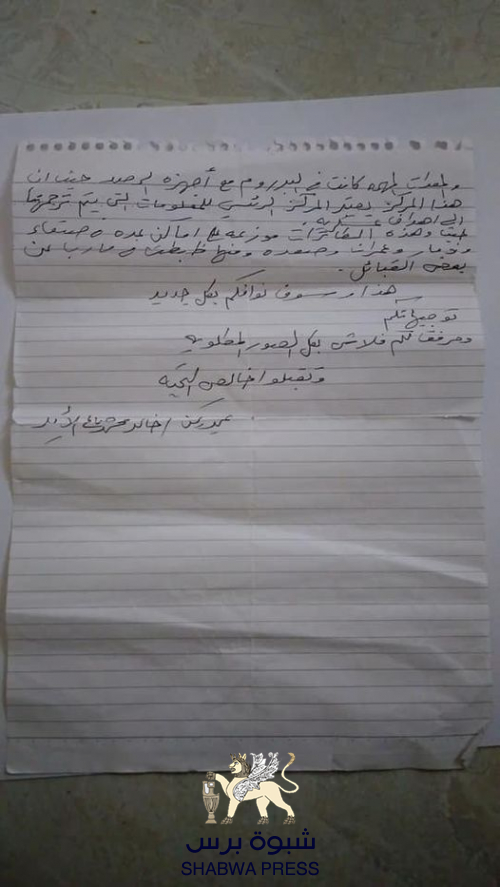 والمعدات المهمه كانت في البدروم مع أجهزه الرصد حيث ان
هذا المركز يعتبر المركز الرئيسي للمعلومات التي يتم ترجمتها
الى اهداف عسكريه
وهذه الطائرات موزعه على اماكن عده في صنعاء
وذمار وعمران وصعده ومنها ضبطت في مارب من
بعض القبائل .
هذا وسوف نوافكم بكل جديد
توجيهاتكم
ومرفق لكم فلاش بكل الصور المطلوبه
وتقبلوا خالص التحيه
عميد ركن / خالد
شبوة برس
SHABWA PRESS